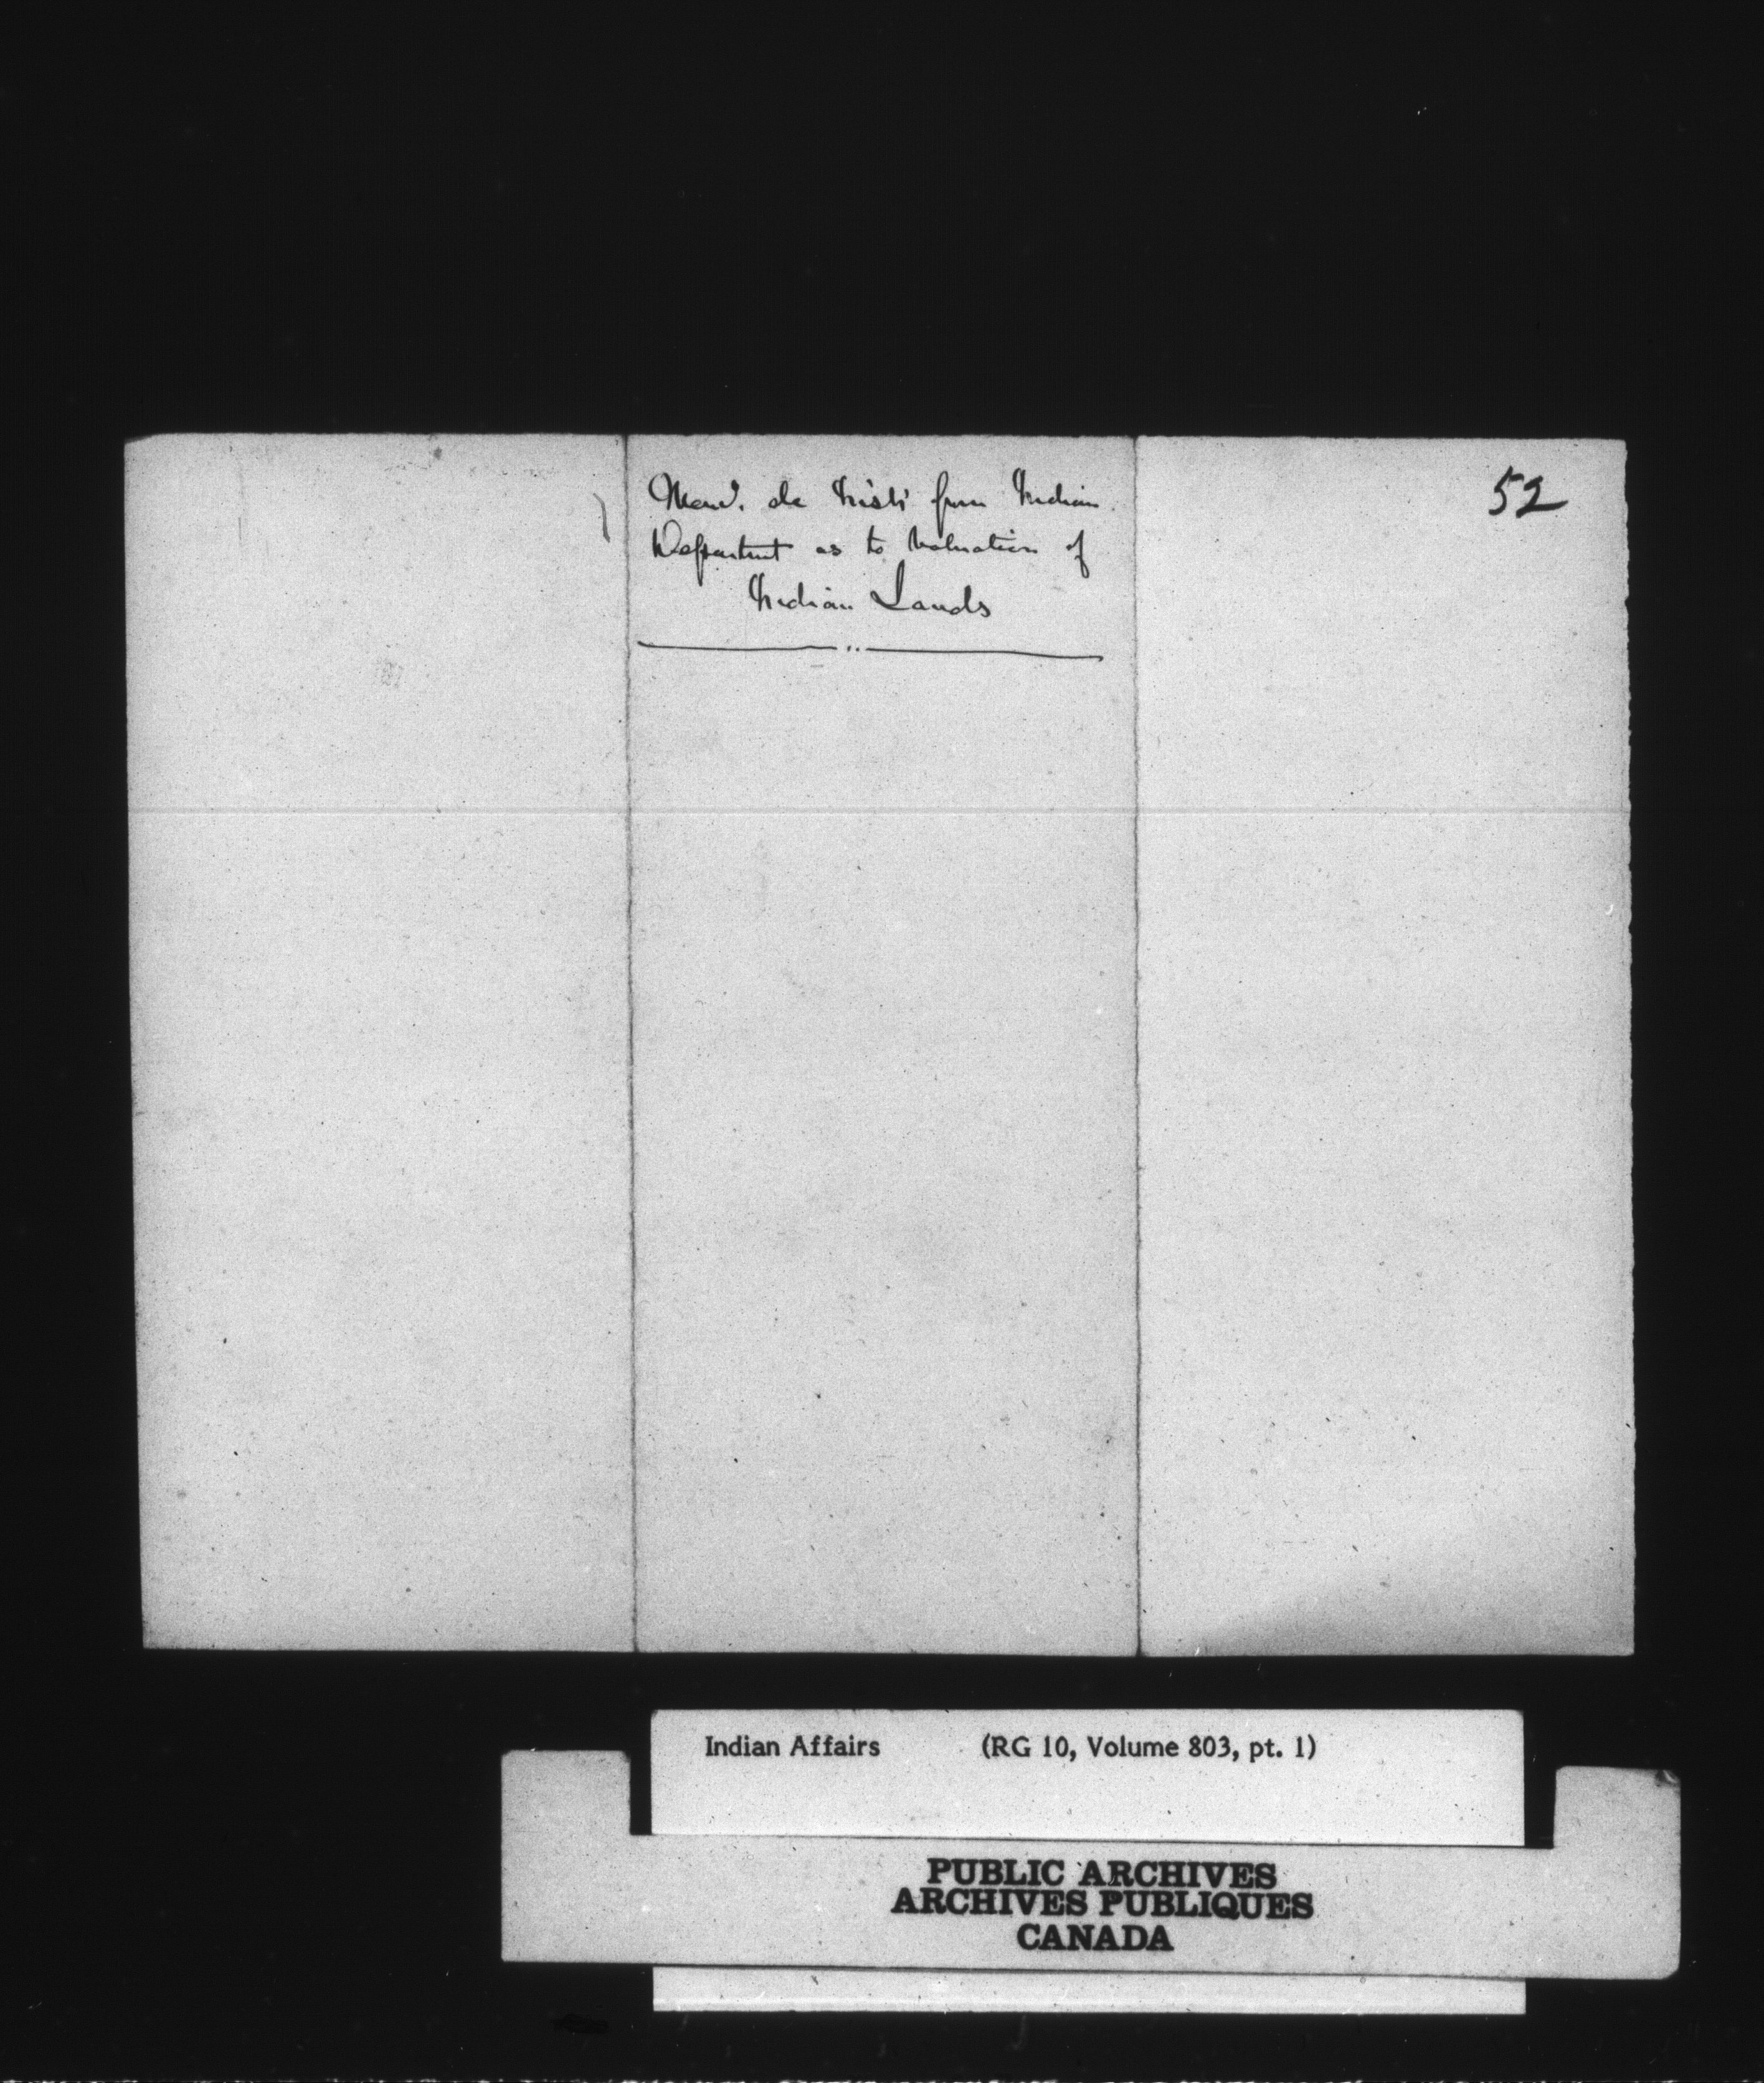 52
Mem'd. de Inst's from Indian
Department as to Valuation of
Indian Lands
Indian Affairs (RG 10, Volume 803, pt. 1)
PUBLIC ARCHIVES
ARCHIVES PUBLIQUES
CANADA